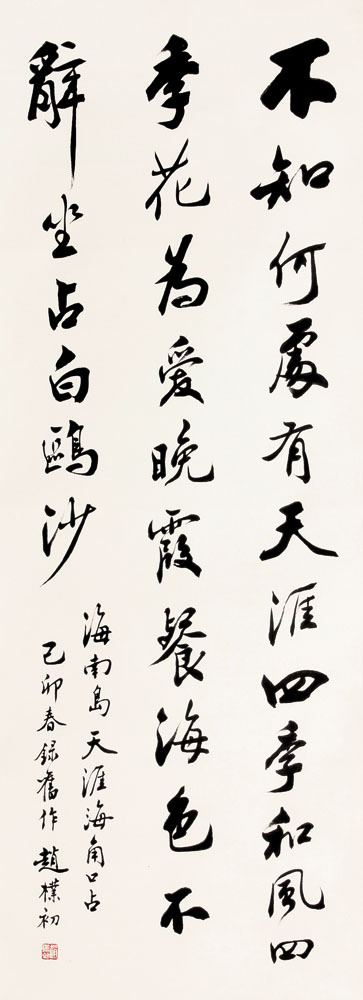 不知何處有天涯四季和風四
季花為愛晚霞餐海色不
辭坐占白鷗沙
海南島天涯海角口占
己卯春録舊作趙樸初